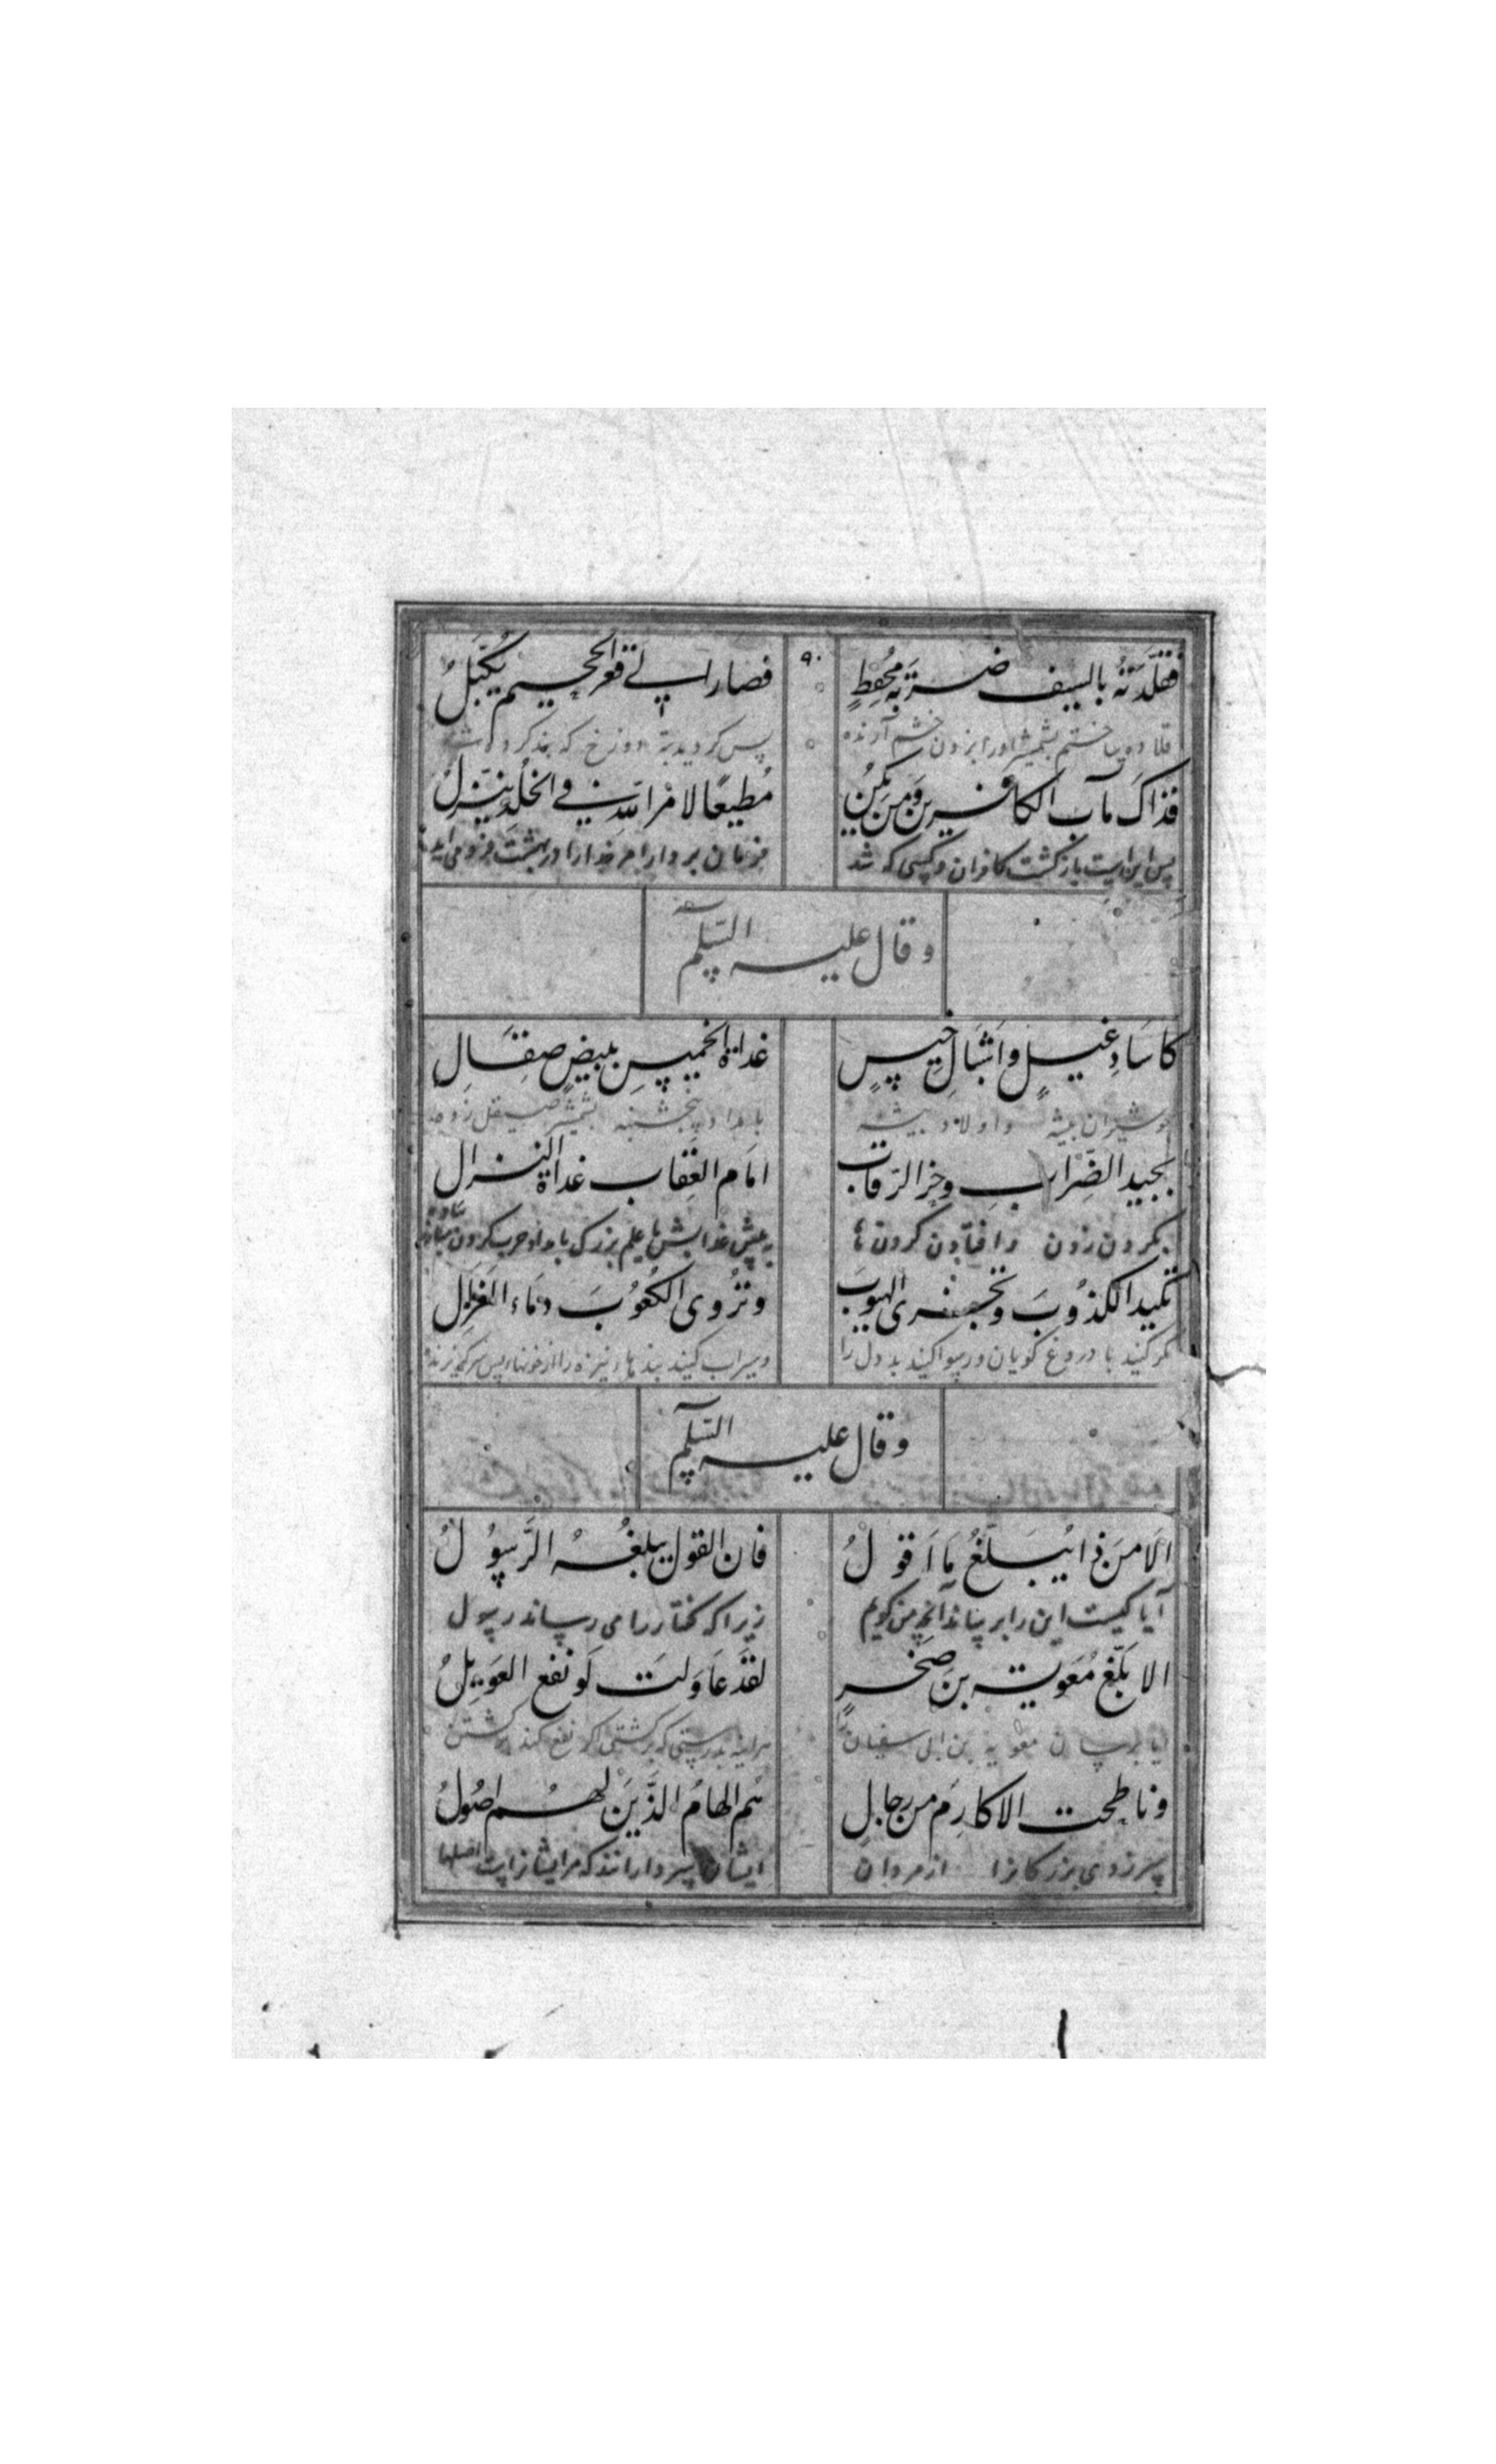 فقلّدته بالسیف ضربة محفظٍ
فصار الی قعر الجحیم یُکبَّلُ
۹۰
قلاده ساختم بشمشیر او را بزدن خشم آرنده
پس کردید بته دوزخ که بند کرده شد
فذاک مآب الکافرین ومن یکن
مُطیعًا لامر الله فی الخلد ینزلُ
پس این است بازکشت کافران و کسی که شد
فرمان بردار امر خدا را در بهشت فرو می آید
وقال علیه السّلم
کآساد غیلٍ واشبالِ خیسٍ
غداة الخمیسِ ببیضٍ صِقالِ
شیران بیشه واولاد بیشه
بامداد پنجشنبه بشمشیر صیقل زده
بجید الضِّرابِ وحزّ الرّقاب
امَام العِقاب غداة النزال
زدن وافتادن کردن ها
پیش بزرک بامداد حرب کردن
تکید الکذُوبَ وتجفری الهیوبَ
وتُروی الکُعُوبَ دمَاءَ القَذالِ
مکر کنید با دروغ کویان ورسوا کنید بد دل را
وسیراب کنید بندهاء نیزه را از خونهاء پس سر
وقال علیه السّلم
الَا مَن ذا یُبَلّغُ مَا اَقولُ
فان القول یبلغُهُ الرَّسُولُ
آیا کیست این را برساند آنچه من کویم
زیرا که کفتار را می رساند رسول
الا بَلّغ مُعَویة بنَ صَخرٍ
لقَد حَاوَلتَ لَو نفع العَوِیلُ
آیا برسان معویه بن ابی سفیان را
هراینه بدرستی که اکر نفع کند
وناطحت الاکارِمَ من رجالٍ
هُم الهامُ الذَّینَ لهُم اصُولُ
سر زدی بزرکانرا از مردان
ایشان سردارانند که مر ایشانراست اصلها